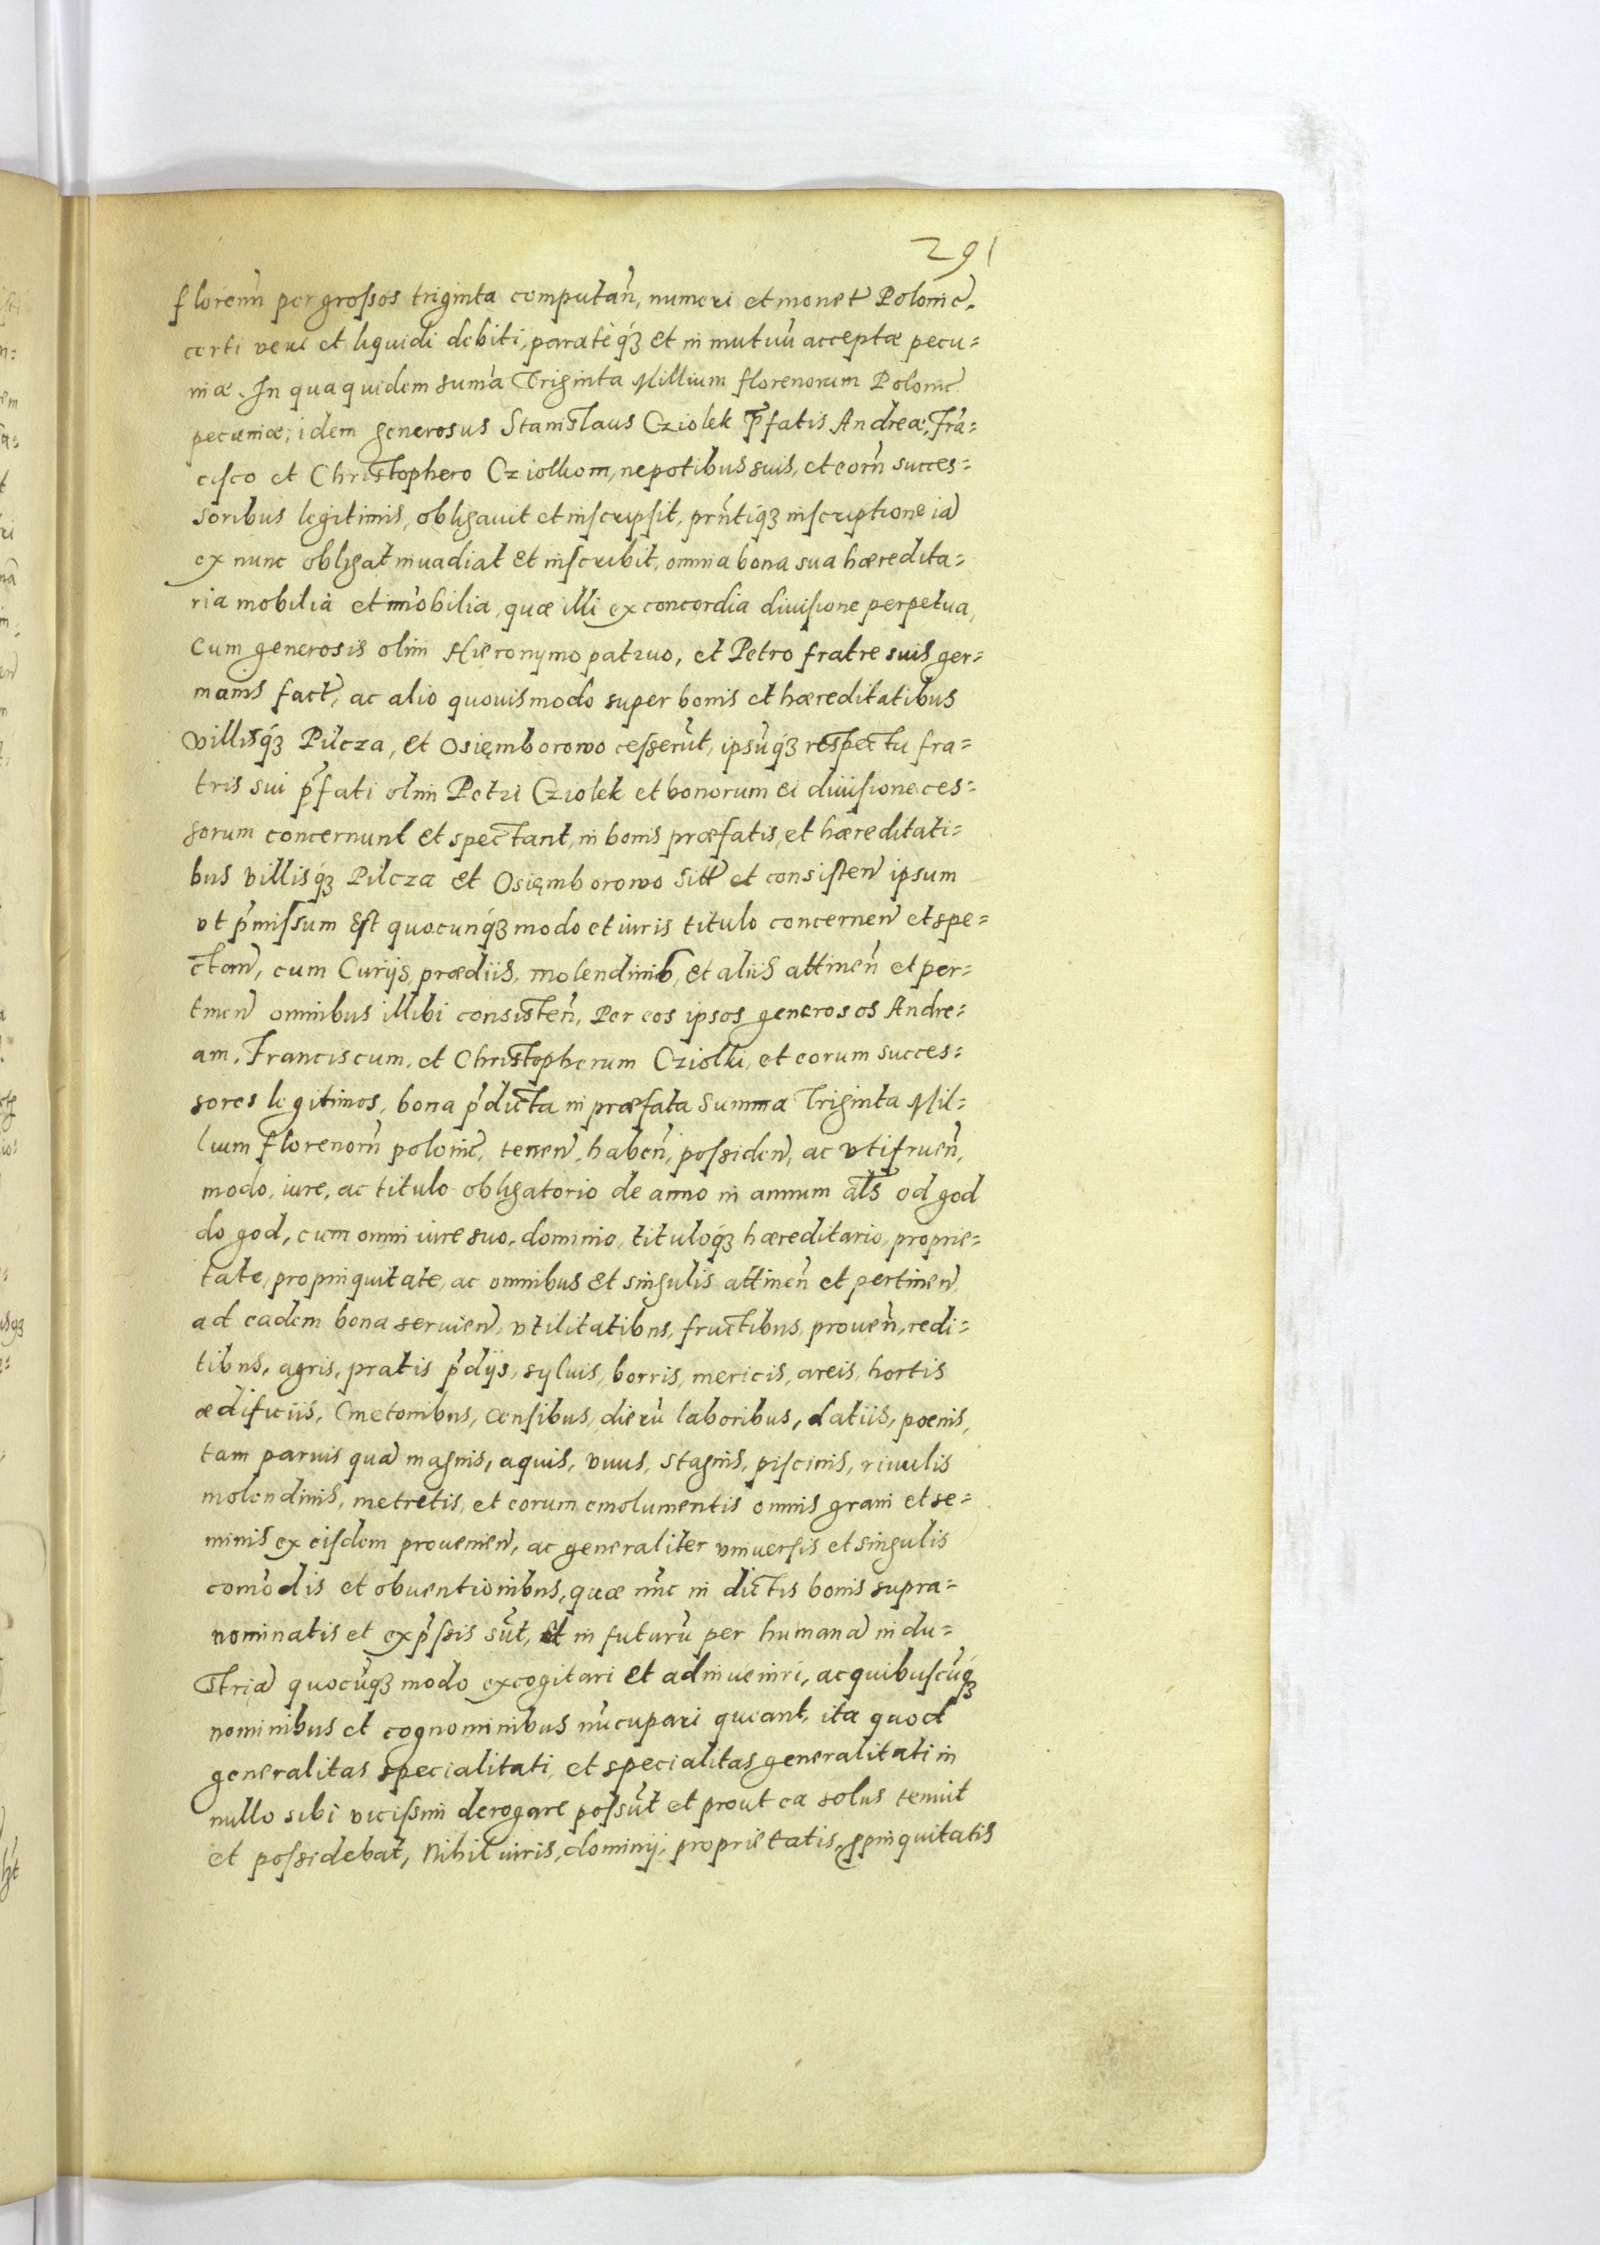 291
florenn̄ per grossos triginta computan̄, numeri et monet̄ Polonic̄.
certi veri et liquidi debiti, parateq́ꝫ et in mutuū acceptæ pecu=
niæ. In qua quidem sum̄a Triginta Millium florenorum Polonic̄
pecuniæ, idem generosus Stanislaus Cziolek p̄fatis Andreæ, Frā=
cisco et Christophero Cziolkom, nepotibus suis, et eorn̄ succes=
soribus legitimis, obligavit et inscripsit, prn̄tiq́ꝫ inscriptione iā
ex nunc obligat inuadiat et inscribit, omnia bona sua hæredita=
ria mobilia et im̄obilia, quæ illi ex concordia diuisione perpetua,
cum generosis olim Hieronymo patruo, et Petro fratre suis ger=
manis fact̄, ac alio quouismodo super bonis et hæreditatibus
villisq́ꝫ Pilcza, et Osięmborowo cesserūt, ipsūq́ꝫ respectu fra=
tris sui p̄fati olim Petri Cziolek et bonorum ei diuisione ces=
sorum concernunt et spectant, in bonis præfatis, et hæreditati=
bus villisq́ꝫ Pilcza et Osięmborowo sitt̄ et consisten̄ ipsum
vt p̄missum est quocunq́ꝫ modo et iuris titulo concernen̄ et spe=
ctan̄, cum Curijs, prædiis, molendinib, et aliis attinen̄ et per=
tinen̄ omnibus illibi consisten̄, Per eos ipsos generosos Andre=
am, Franciscum, et Christopherum Cziolki, et eorum succes=
sores legitimos, bona p̄dicta in præfata summa Triginta Mil=
lium florenorn̄ polonic̄, tenen̄, haben̄, possiden̄, ac vtifruen̄,
modo, iure, ac titulo obligatorio de anno in annum als̄ od god
do god, cum omni iure suo, dominio, tituloq́ꝫ hæreditario, proprie=
tate, propinquitate, ac omnibus et singulis attinen̄ et pertinen̄
ad eadem bona seruien̄, vtilitatibus, fructibus, prouen̄, redi=
tibus, agris, pratis p̄dijs, syluis, borris, mericis, areis, hortis
ædificiis, Cmetonibus, censibus, dierū laboribus, datiis, poenis,
tam paruis quā magnis, aquis, viuis, stagnis, piscinis, riuulis
molendinis, metretis, et eorum emolumentis omnis grani et se=
minis ex eisdem prouenien̄, ac generaliter vniuersis et singulis
com̄odis et obuentionibus, quæ nūc in dictis bonis supra=
nominatis et exp̄ssis sūt, et in futurū per humanā indu=
striā quocūq́ꝫ modo excogitari et adinueniri, ac quibuscūq́ꝫ
nominibus et cognominibus nūcupari queant, ita quod
generalitas specialitati, et specialitas generalitati in
nullo sibi vicissim derogare possūt et prout ea solus tenuit
et possidebat, Nihil iuris, dominij, proprietatis, ꝓpinquitatis